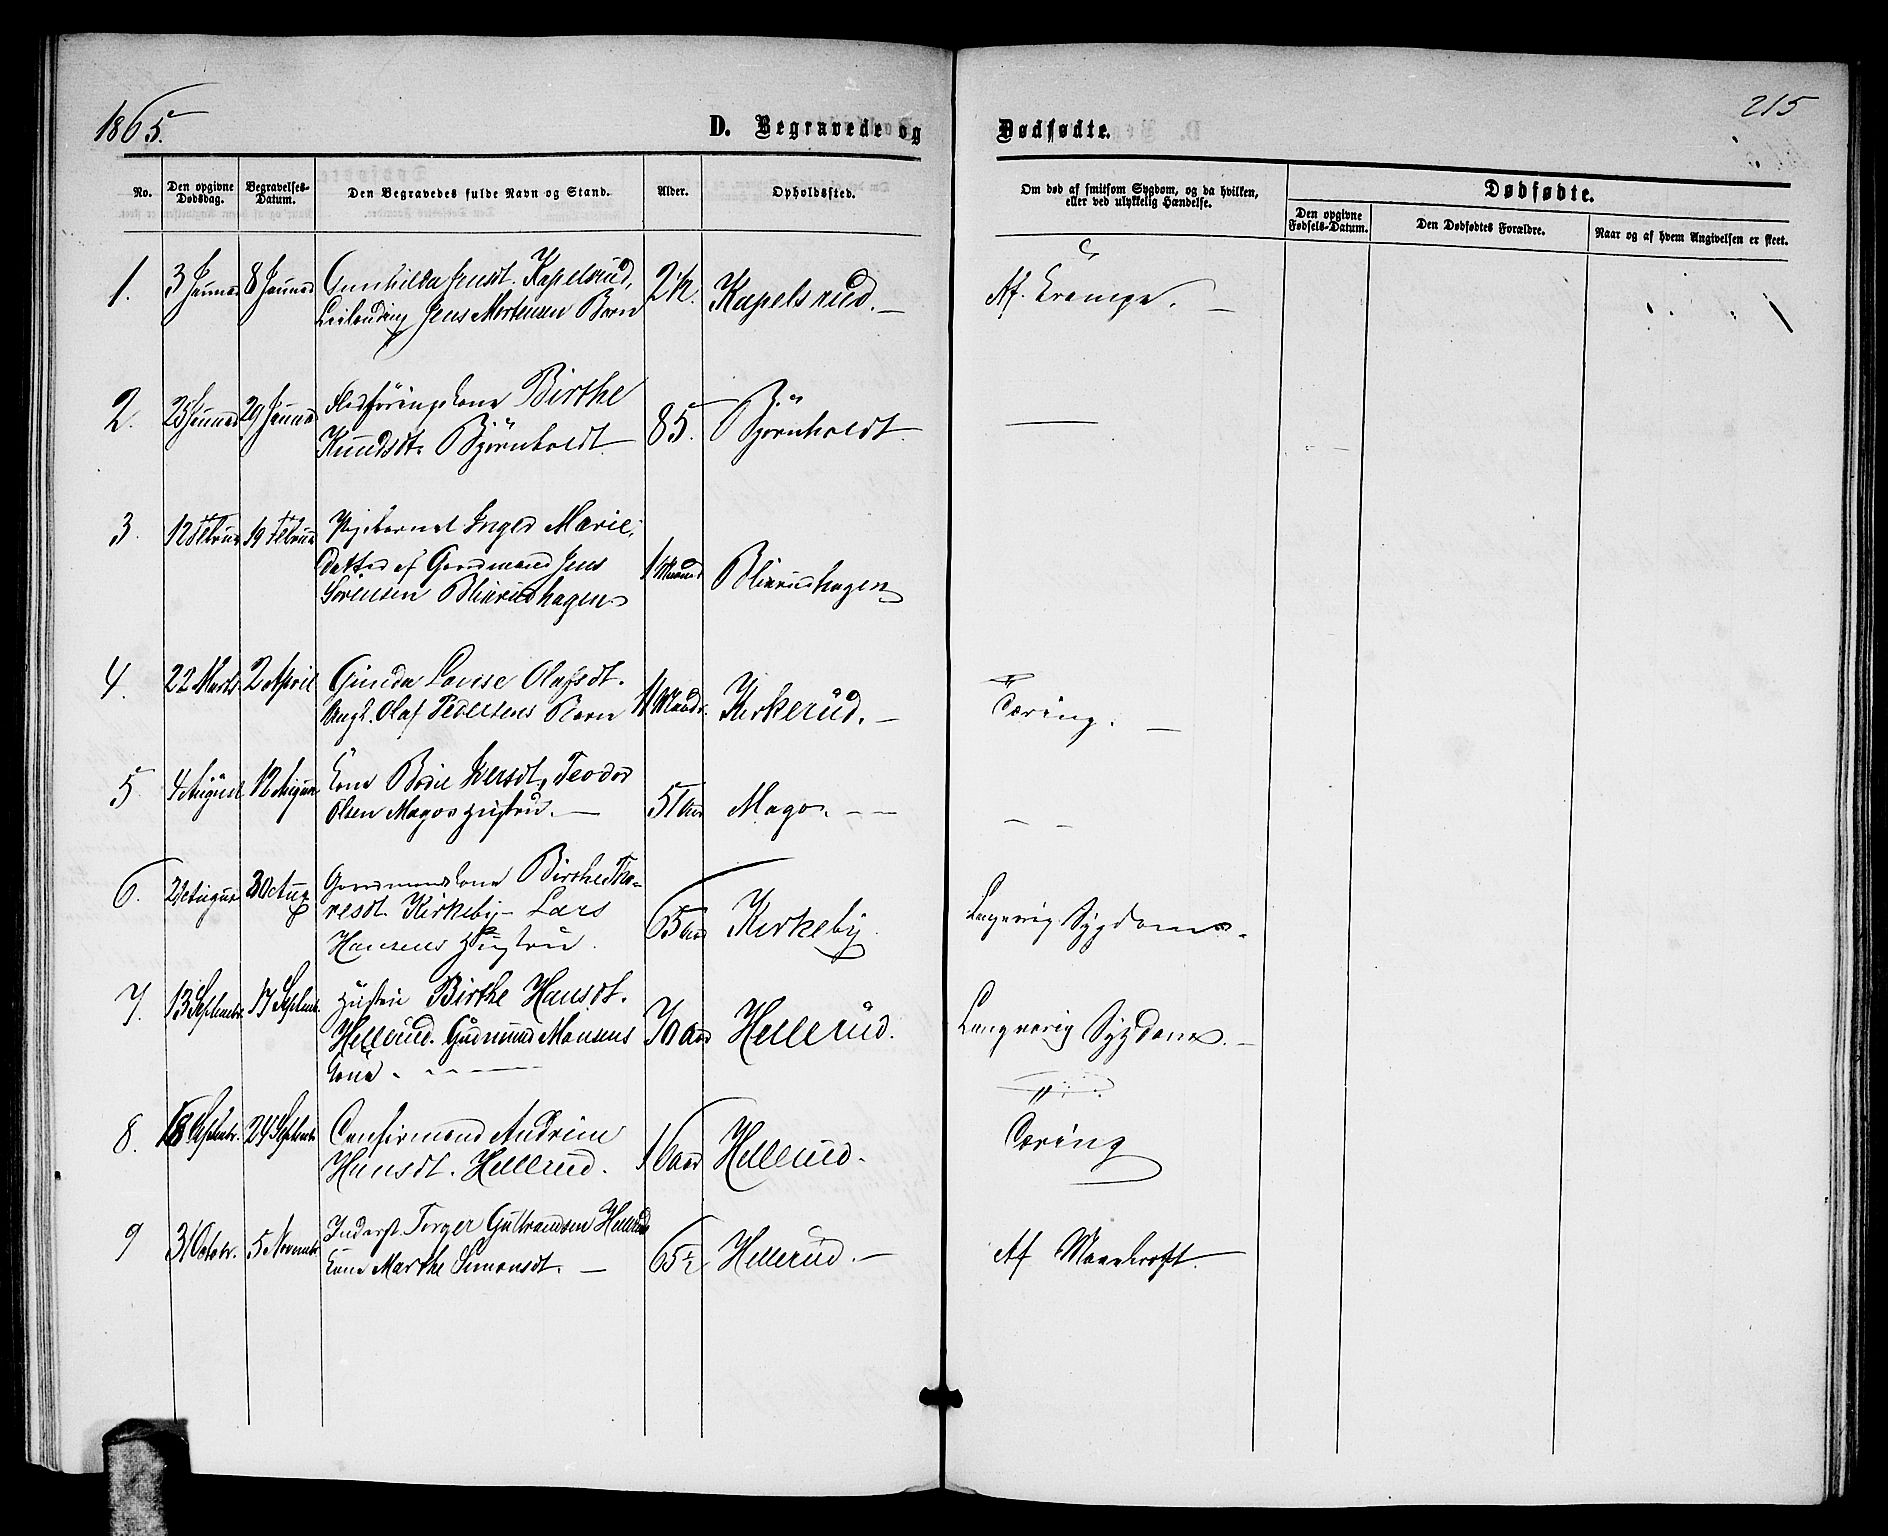 1865.
D. Begravede og
Dødfødte.
215
No.
Den opgivne Dødsdag.
Begravelses-Datum.
Den Begravedes fulde Navn og Stand.
Alder.
Opholdssted.
Om død af smitsom Sygdom, og da hvilken, eller ved ulykkelig Hændelse.
Dødfødte.
Den opgivne Fødsels-Datum.
Den Dødfødtes Forældre.
Naar og af hvem Angivelsen er skeet.
1. 3 Januar 8 Januar Gunhilda Jensdt. Kapelsrud, Kapelsrud. Af Krampe.
Leilending Jens Mortensen Barn
2. 29 Januar Birthe 85. Bjørnholdt
Knudsdt. Bjørnholdt
3. 12 Februar 19 Februar Inger Marie,
Datter af Gaardmand Jens 1 Maaned Blixrudhagen
Sørensen Blixrudhagen
4. 22 Marts 2 April Gunda Lovise Olafsdt. Kirkerud. Tæring.
Ungk. Olaf Pedersens Barn
5. 4 August 12 August Kone Bodil Iversdt. Teodor
Olsen Magos Hustru. 51 Aar Mago.
6. 30 Aug Gaardmandskone Birthe Tho-
resdt. Kirkeby Lars 65 Aar Kirkeby. Langvarig Sygdom.
Hansens Hustru.
7. 13 September 17 Septem. Hustru Birthe Hansdt.
Hellerud. Gudmund Monsens 70 Aar Hellerud. Langvarig Sygdom.
Kone.
8. 18 Septembr. 24 Septembr. Confirmand Andrine Tæring
Hansdt. Hellerud. 16 Aar Hellerud.
9 31 Octobr. 5 Novembr. Inderst Torger Gulbrandsen Hellerud
Kone Marthe Simonsdt. 65½ Hellerud. Af